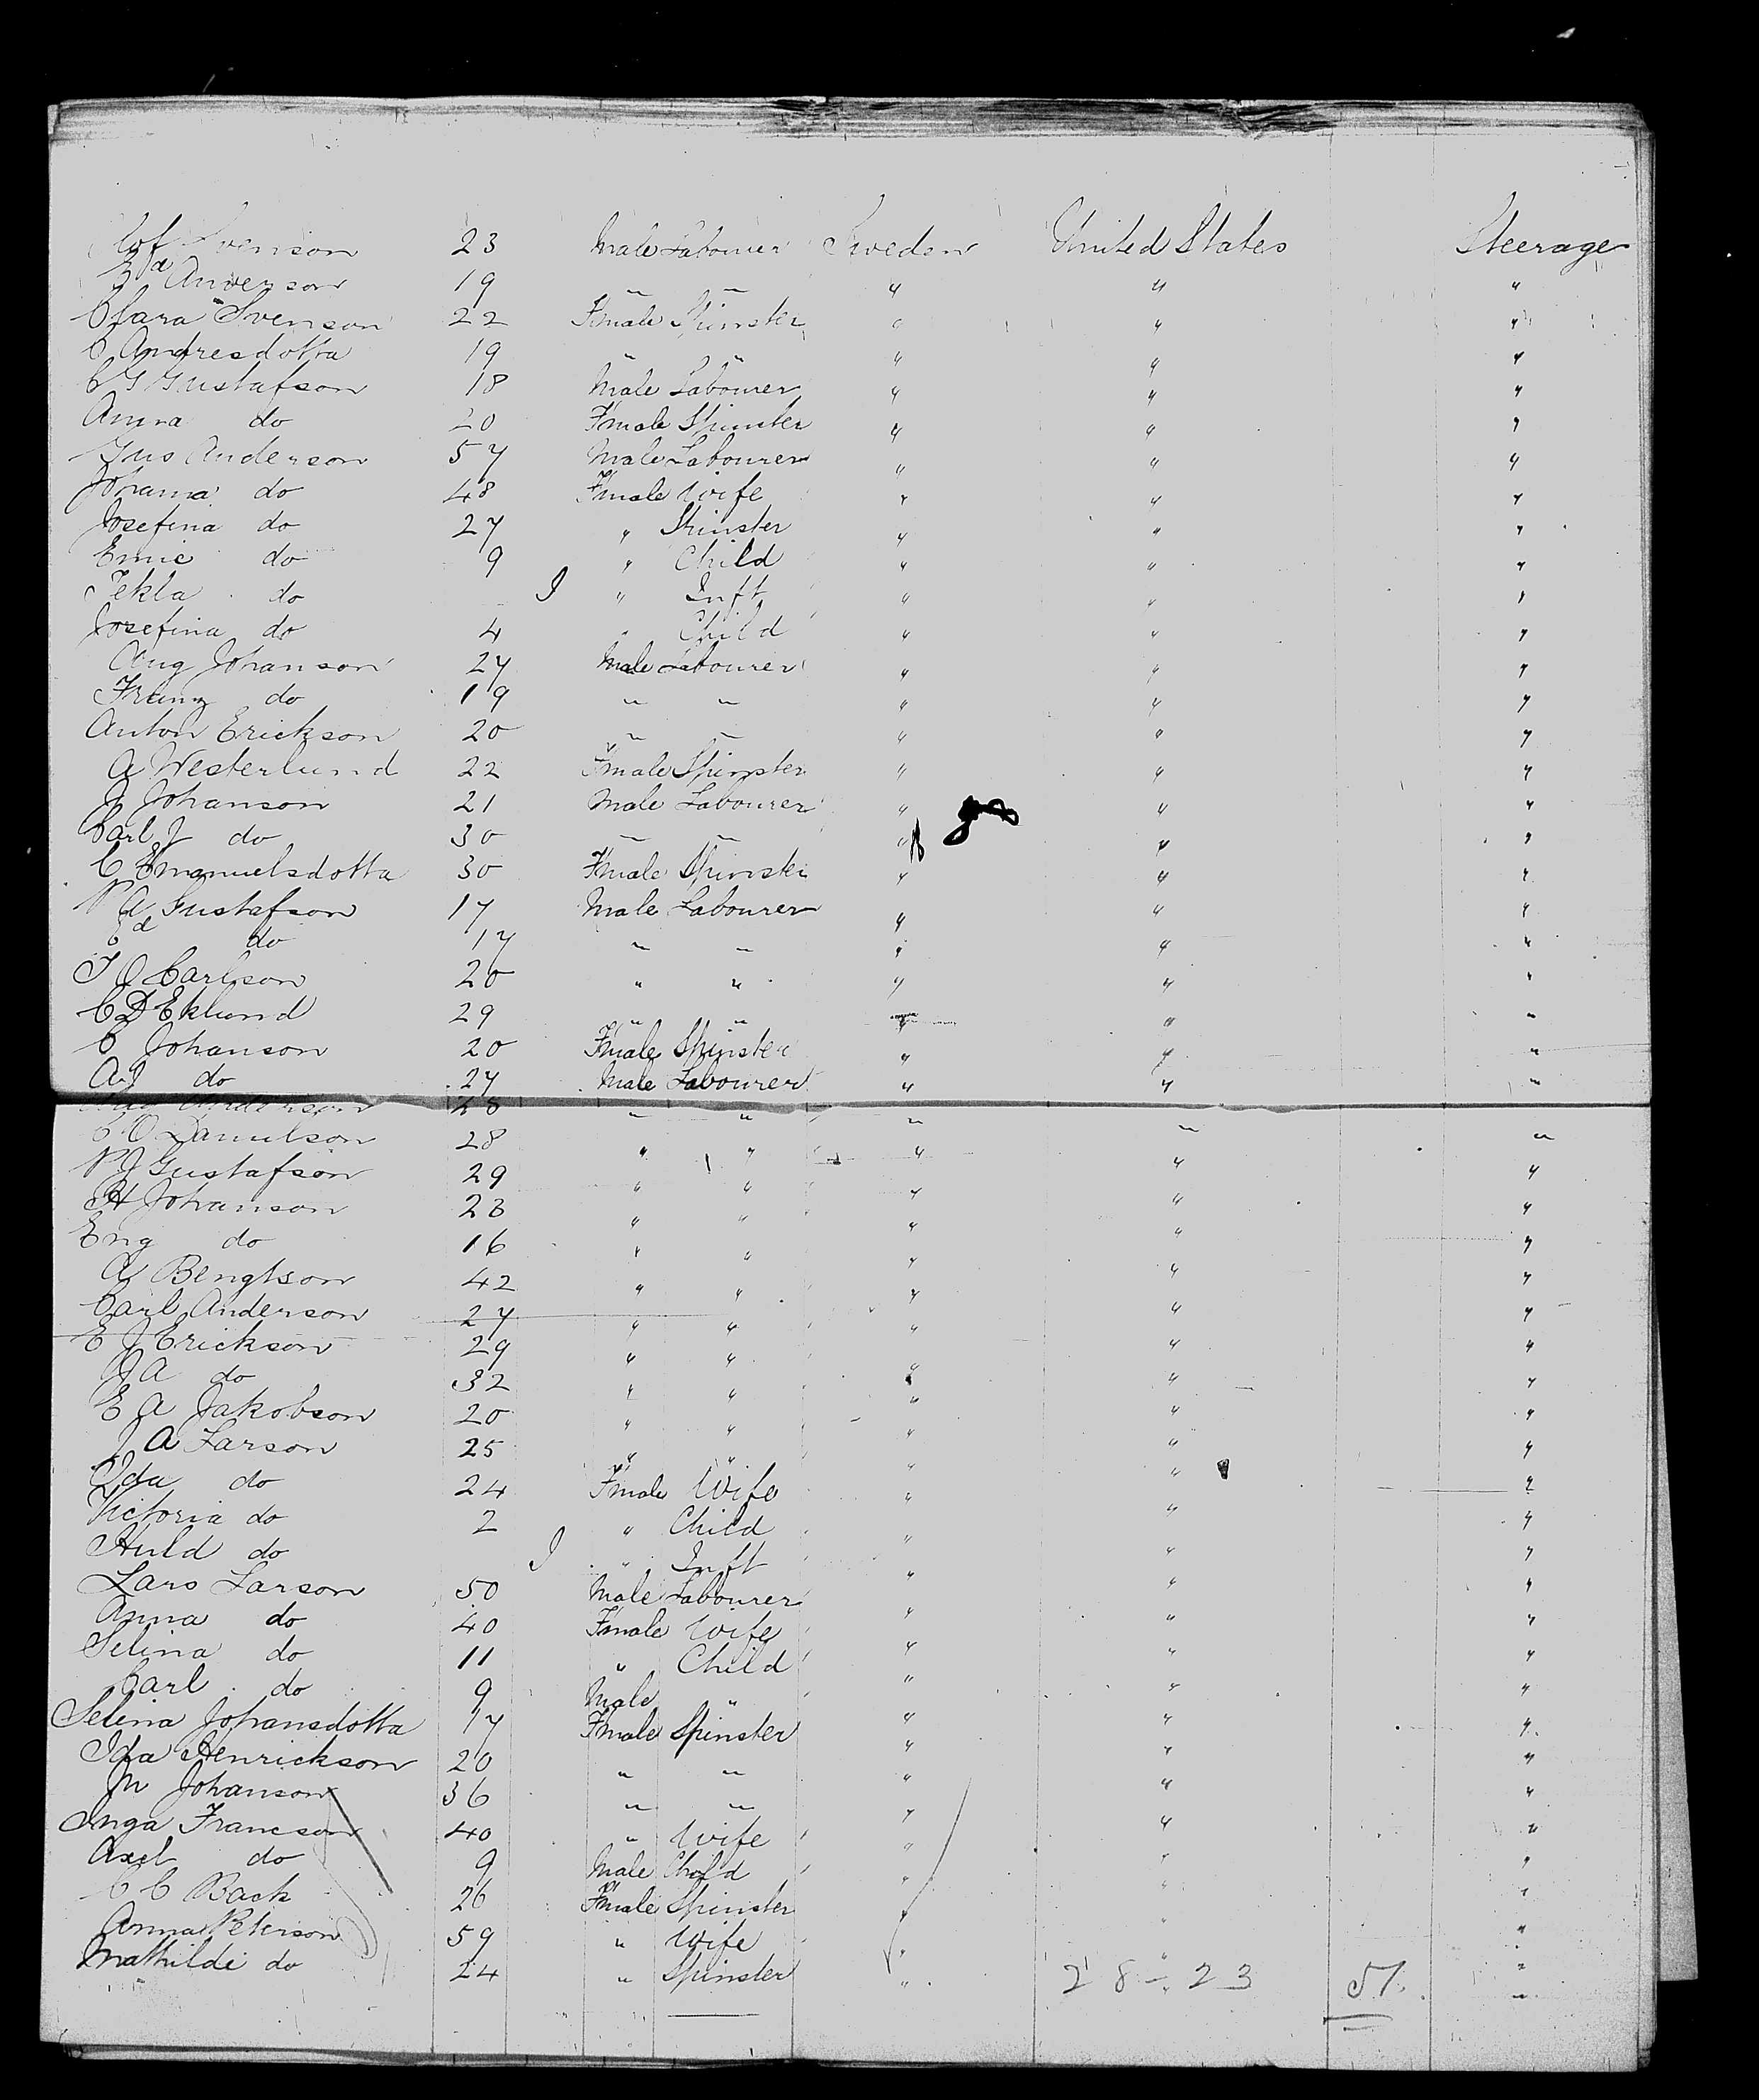 Svenson 23 Male Labourer Sweden United States Steerage
Ed Anderson 19 " " " " "
Clara Svenson 22 Fmale Spinster " " "
C Andresdotta 19 " " " " "
C G Gustafson 18 Male Labourer " " "
Anna do 20 Fmale Spinster " " "
Gus Anderson 57 Male Labourer " " "
Johana do 48 Fmale Wife " " "
Josefina do 27 " Spinster " " "
Emie do 9 " Child " " "
Tekla do I " Inft " " "
Josefina do 4 " Child " " "
Aug Johanson 27 Male Labourer " " "
Franz do 19 " " " " "
Anton Erickson 20 " " " " "
A Westerlund 22 Fmale Spinster " " "
J Johanson 21 Male Labourer " " "
Carl J do 30 " " " " "
C Emanuelsdotta 30 Fmale Spinster " " "
P A Gustafson 17 Male Labourer " " "
Ed do 17 " " " " "
J O Carlson 20 " " " " "
C D Eklund 29 " " " " "
C Johanson 20 Fmale Spinster " " "
A J do 27 Male Labourer " " "
Anderson 28 " " " " "
C O Danielson 28 " " " " "
P J Gustafson 29 " " " " "
H Johanson 23 " " " " "
Eng do 16 " " " " "
A Bengtson 42 " " " " "
Carl Anderson 27 " " " " "
E J Erickson 29 " " " " "
J A do 32 " " " " "
E A Jakobson 20 " " " " "
J A Larson 25 " " " " "
Ida do 24 Fmale Wife " " "
Victoria do 2 " Child " " "
Huld do I " Inft " " "
Lars Larson 50 Male Labourer " " "
Anna do 40 Fmale Wife " " "
Selina do 11 " Child " " "
Carl do 9 Male " " " "
Selina Johansdotta 17 Fmale Spinster " " "
Ida Henrickson 20 " " " " "
M Johanson 36 " " " " "
Inga Francson 40 " Wife " " "
Axel do 9 Male Child " " "
C C Back 26 Fmale Spinster " " "
Anna Peterson 59 " Wife " " "
Mathilde do 24 " Spinster " " "
28 - 23 51